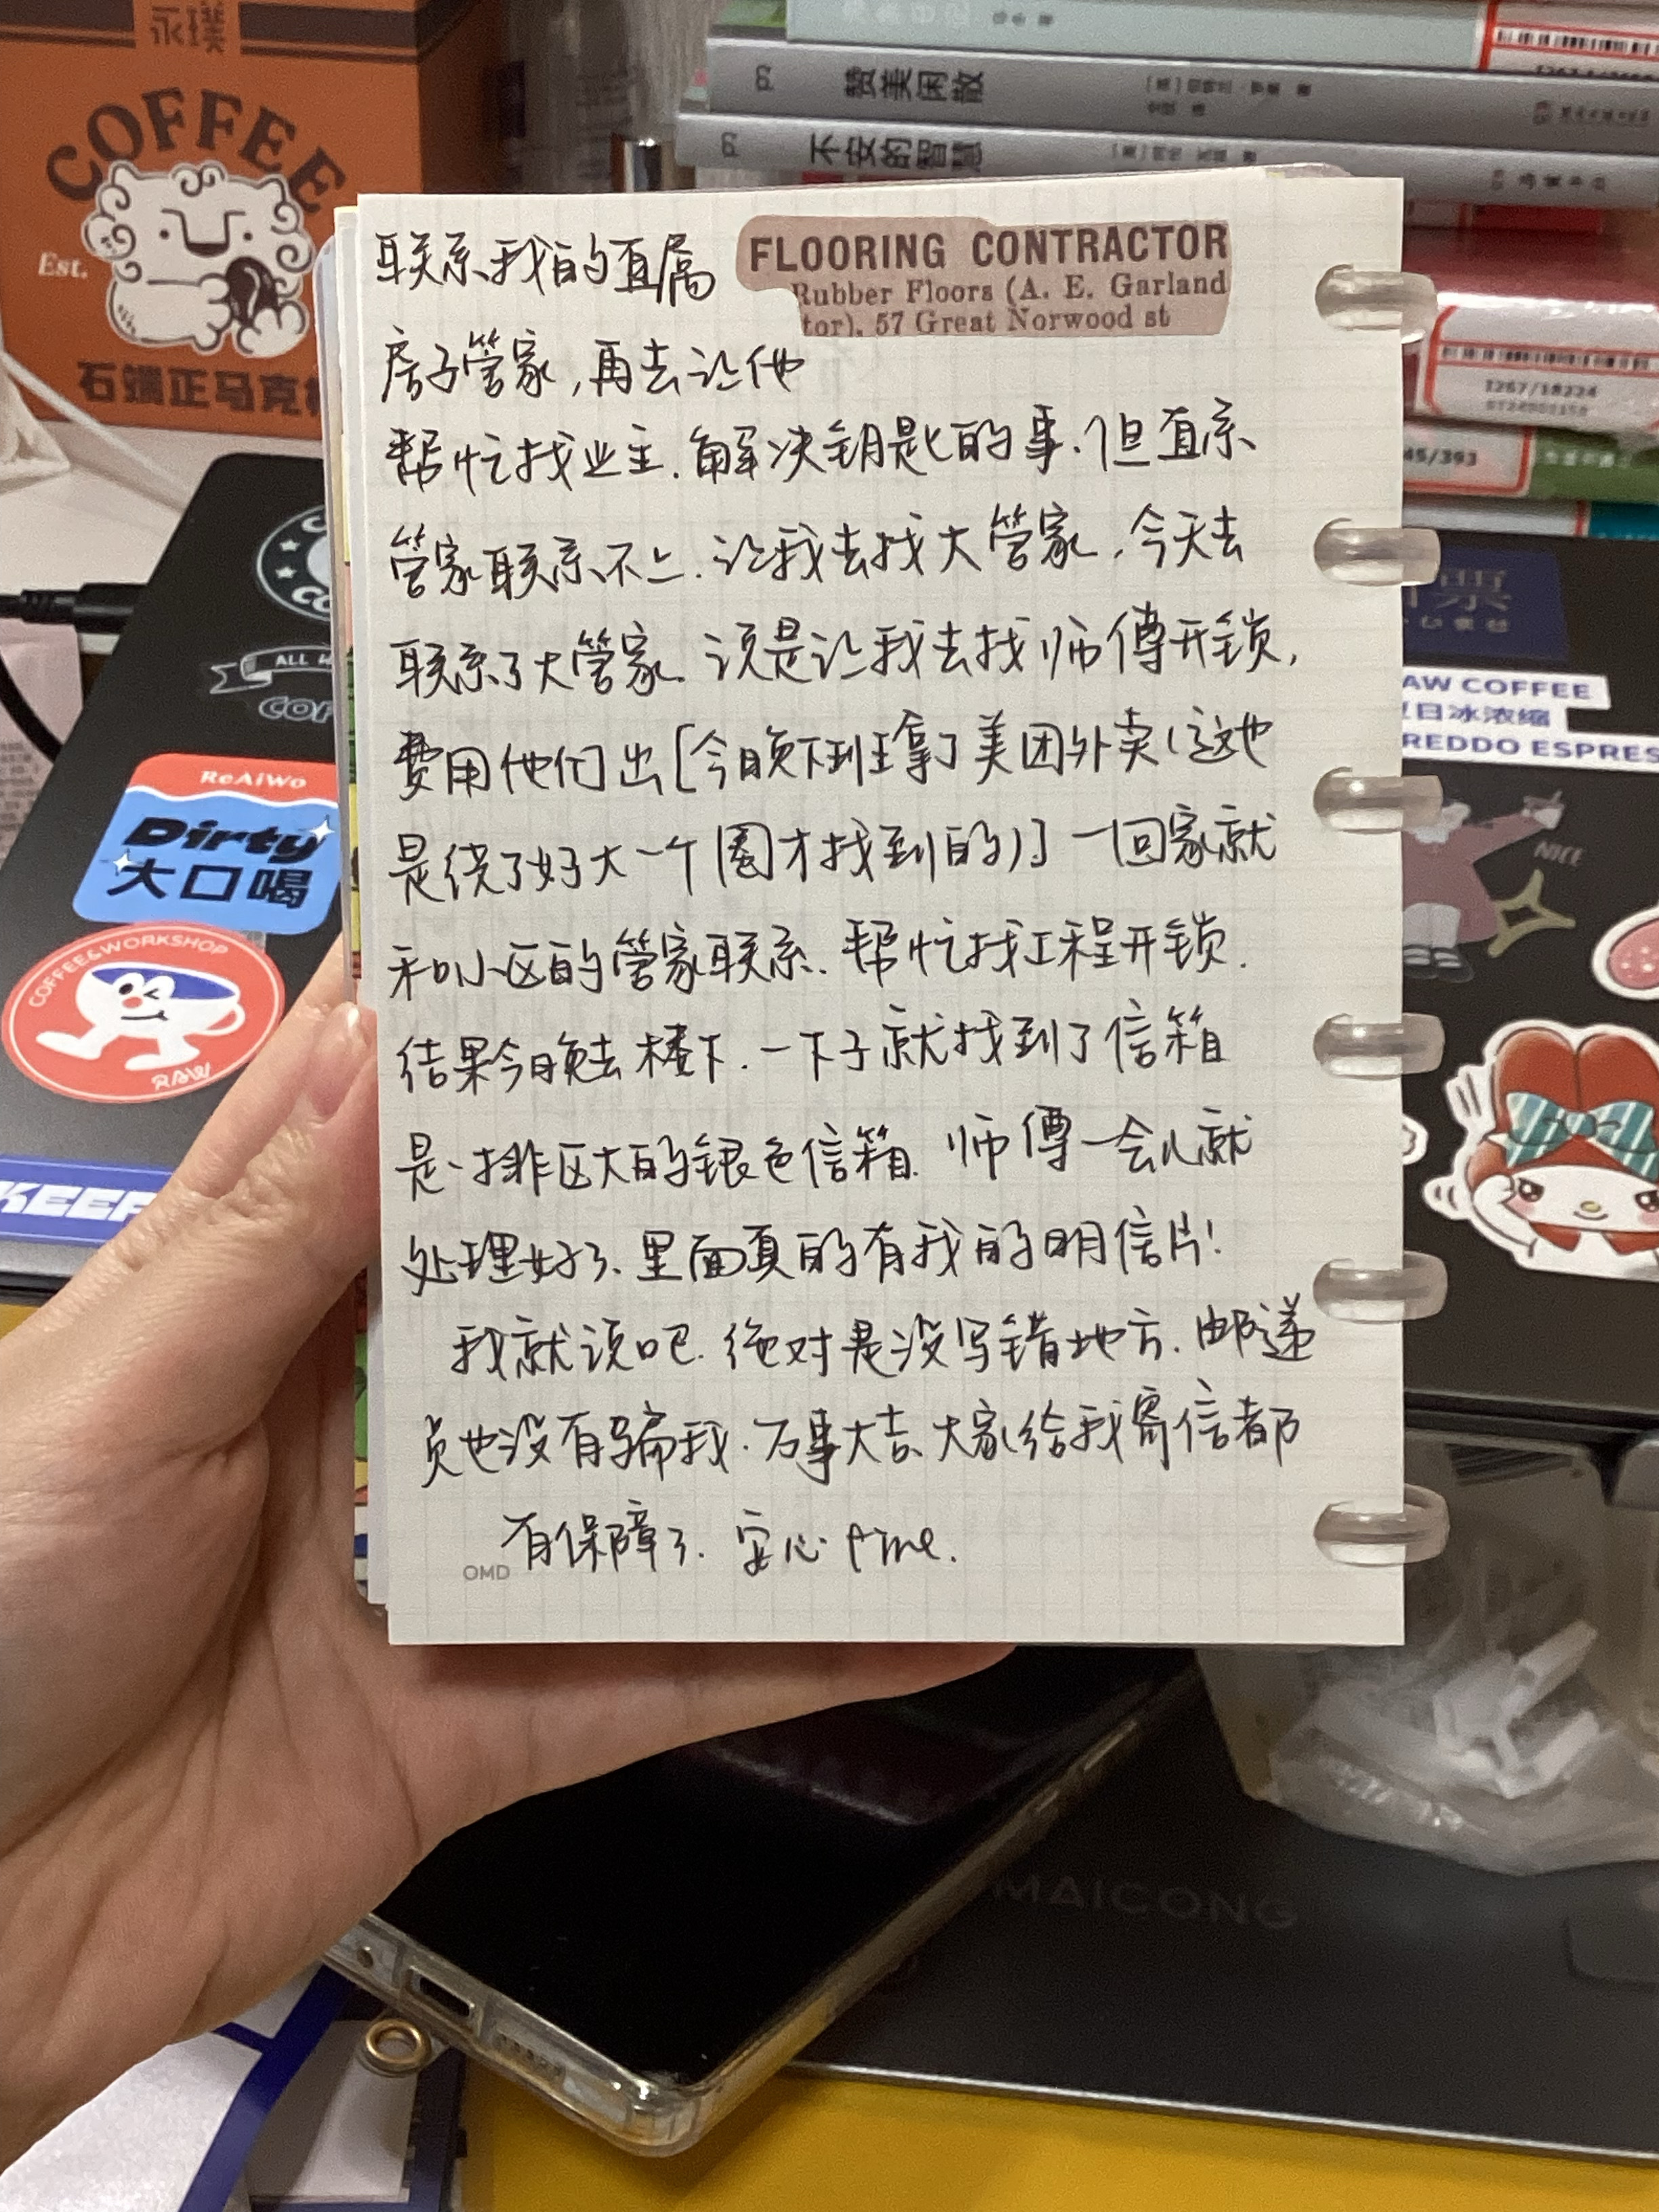 永璞
COFFEE
Est.
石端正马克
赞美闲散
不安的智慧
I267/18224
ST24001150
45/393
联系我的直属
FLOORING CONTRACTOR
Rubber Floors (A. E. Garland
tor), 57 Great Norwood st
房子管家,再去让他
帮忙找业主.解决钥匙的事.但直系
管家联系不上.让我去找大管家.今天去
联系了大管家.说是让我去找师傅开锁,
费用他们出[今晚下班拿了美团外卖(这也
是绕了好大一个圈才找到的)]一回家就
和小区的管家联系.帮忙找工程开锁.
结果今晚去楼下.一下子就找到了信箱
是一排巨大的银色信箱.师傅一会儿就
处理好了、里面真的有我的明信片!
我就说吧.绝对是没写错地方.邮递
员也没有骗我.万事大吉、大家给我寄信都
有保障了.安心 fine.
OMD
ALL
COF
ReAiWo
Dirty
大口喝
COFFEE&WORKSHOP
RAW
KEEP
票
AW COFFEE
日冰浓缩
REDDO ESPRES
NICE
MAICONG